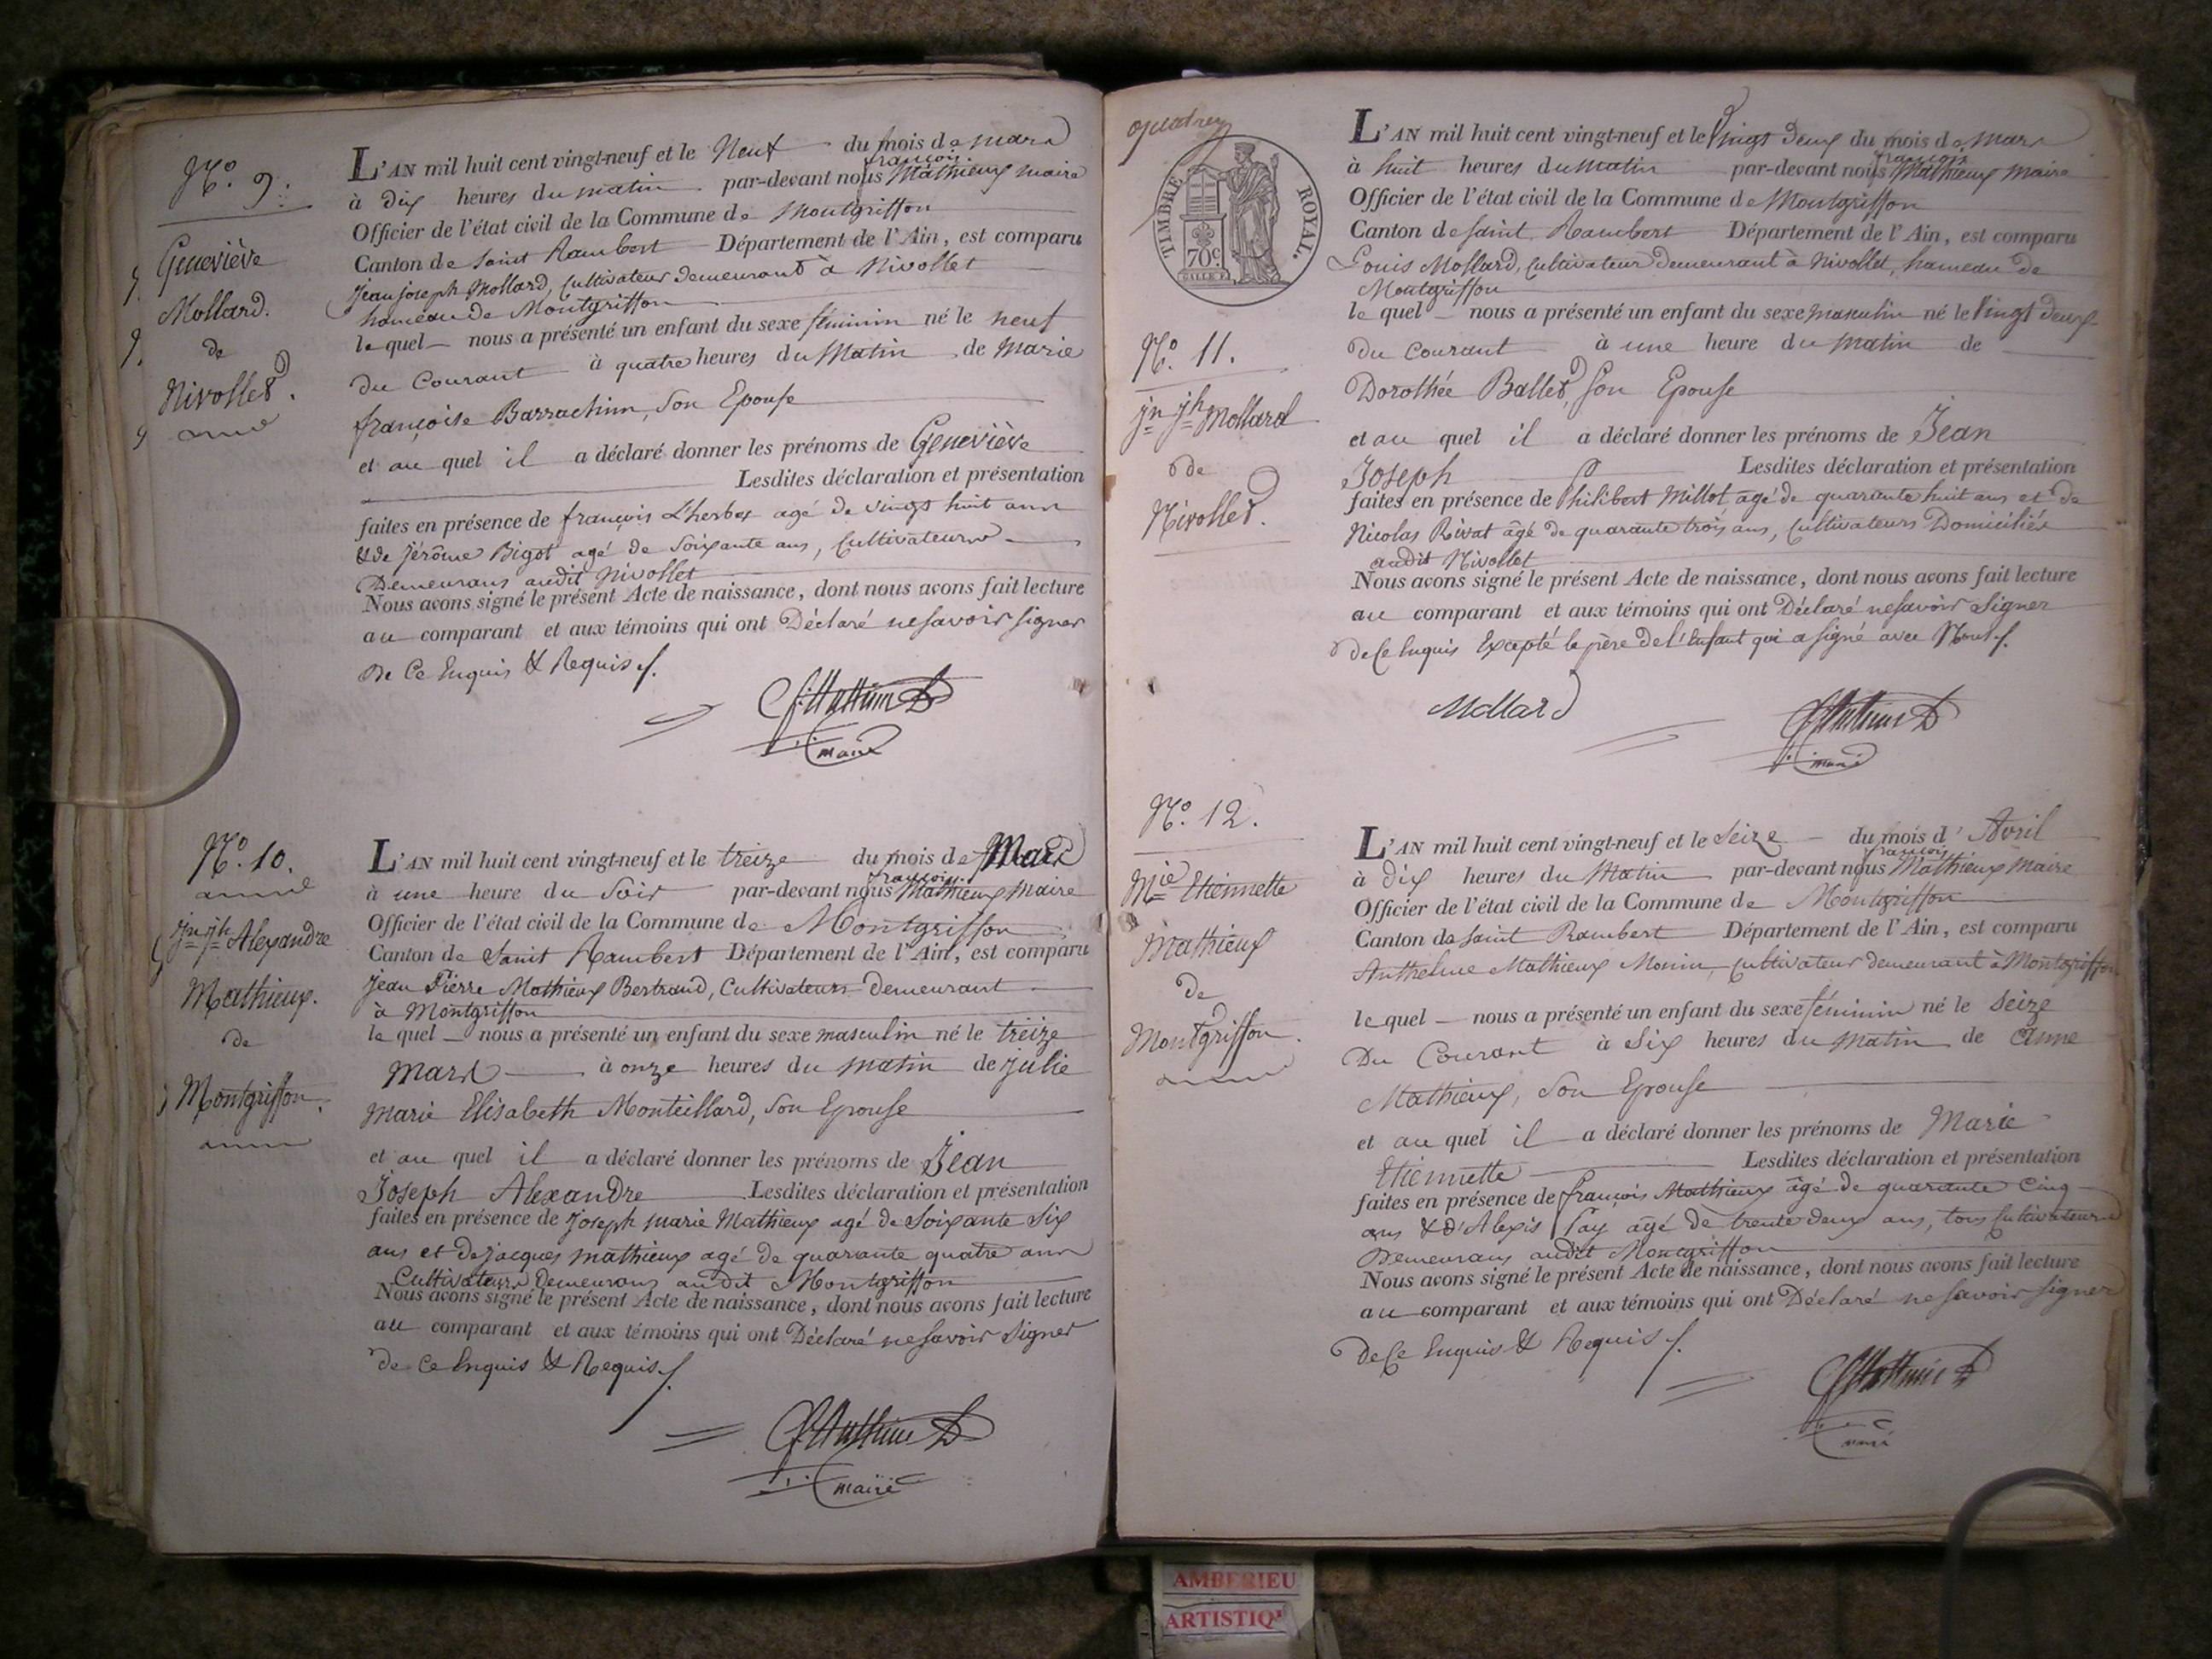 N.º 9.
Geneviève
Mollard.
de
Nivollet.
L'AN mil huit cent vingt-neuf et le Neuf du mois de mars
à dix heures du matin par-devant nous françois Mathieux maire
Officier de l'état civil de la Commune de Montgriffon
Canton de Saint Rambert Département de l'Ain, est comparu
Jean joseph Mollard, Cultivateur demeurant à Nivollet
hameau de Montgriffon
le quel nous a présenté un enfant du sexe féminin né le neuf
du Courant à quatre heures du Matin de Marie
françoise Barrachin, Son Epouse
et au quel il a déclaré donner les prénoms de Geneviève
Lesdites déclaration et présentation
faites en présence de françois Lherbex agé de vingt huit ans
& de Jérôme Bigot agé de Soixante ans, Cultivateurs
Demeurans audit Nivollet
Nous avons signé le présent Acte de naissance, dont nous avons fait lecture
au comparant et aux témoins qui ont Déclaré ne Savoir Signer
de Ce Enquis & Requis
maire
N.º 10.
Jn Jh Alexandre
Mathieux.
de
Montgriffon.
L'AN mil huit cent vingt-neuf et le treize du mois de Mars
à une heure du Soir par-devant nous françois Mathieux Maire
Officier de l'état civil de la Commune de Montgriffon
Canton de Saint Rambert Département de l'Ain, est comparu
Jean Pierre Mathieux Bertrand, Cultivateur demeurant
à Montgriffon
le quel nous a présenté un enfant du sexe masculin né le treize
Mars à onze heures du matin de julie
Marie Elisabeth Monteillard, Son Epouse
et au quel il a déclaré donner les prénoms de Jean
Joseph Alexandre Lesdites déclaration et présentation
faites en présence de Joseph marie Mathieux agé de Soixante Six
ans et de jacques mathieux agé de quarante quatre ans
Cultivateurs demeurans audit Montgriffon
Nous avons signé le présent Acte de naissance, dont nous avons fait lecture
au comparant et aux témoins qui ont Déclaré ne Savoir Signer
de Ce Enquis & Requis
maire
TIMBRE ROYAL.
70c
N.º 11.
Jn Jh Mollard
de
Nivollet.
L'AN mil huit cent vingt-neuf et le Vingt Deux du mois de Mars
à huit heures du Matin par-devant nous françois Mathieux maire
Officier de l'état civil de la Commune de Montgriffon
Canton de Saint Rambert Département de l'Ain, est comparu
Louis Mollard, Cultivateur demeurant à Nivollet, hameau de
Montgriffon
le quel nous a présenté un enfant du sexe masculin né le Vingt deux
du Courant à une heure du Matin de
Dorothée Ballet, Son Epouse
et au quel il a déclaré donner les prénoms de Jean
Joseph Lesdites déclaration et présentation
faites en présence de Philibert Millot agé de quarante huit ans et de
Nicolas Rivat âgé de quarante trois ans, Cultivateurs Domiciliés
audit Nivollet
Nous avons signé le présent Acte de naissance, dont nous avons fait lecture
au comparant et aux témoins qui ont Déclaré ne Savoir Signer
de Ce Enquis Excepté le père de l'Enfant qui a signé avec Nous
Mollard
maire
N.º 12.
Mie Etiennette
Mathieux
de
Montgriffon.
L'AN mil huit cent vingt-neuf et le Seize du mois d'Avril
à dix heures du Matin par-devant nous françois Mathieux Maire
Officier de l'état civil de la Commune de Montgriffon
Canton de Saint Rambert Département de l'Ain, est comparu
Anthelme Mathieux Monin, Cultivateur demeurant à Montgriffon
le quel nous a présenté un enfant du sexe féminin né le Seize
Du Courant à Six heures du matin de Anne
Mathieux, Son Epouse
et au quel il a déclaré donner les prénoms de Marie
Etiennette Lesdites déclaration et présentation
faites en présence de françois Mathieux âgé de quarante Cinq
ans & d'Alexis Fay âgé de trente deux ans, tous Cultivateurs
Demeurans audit Montgriffon
Nous avons signé le présent Acte de naissance, dont nous avons fait lecture
au comparant et aux témoins qui ont Déclaré ne Savoir Signer
de Ce Enquis & Requis
AMBERIEU
ARTISTIQ